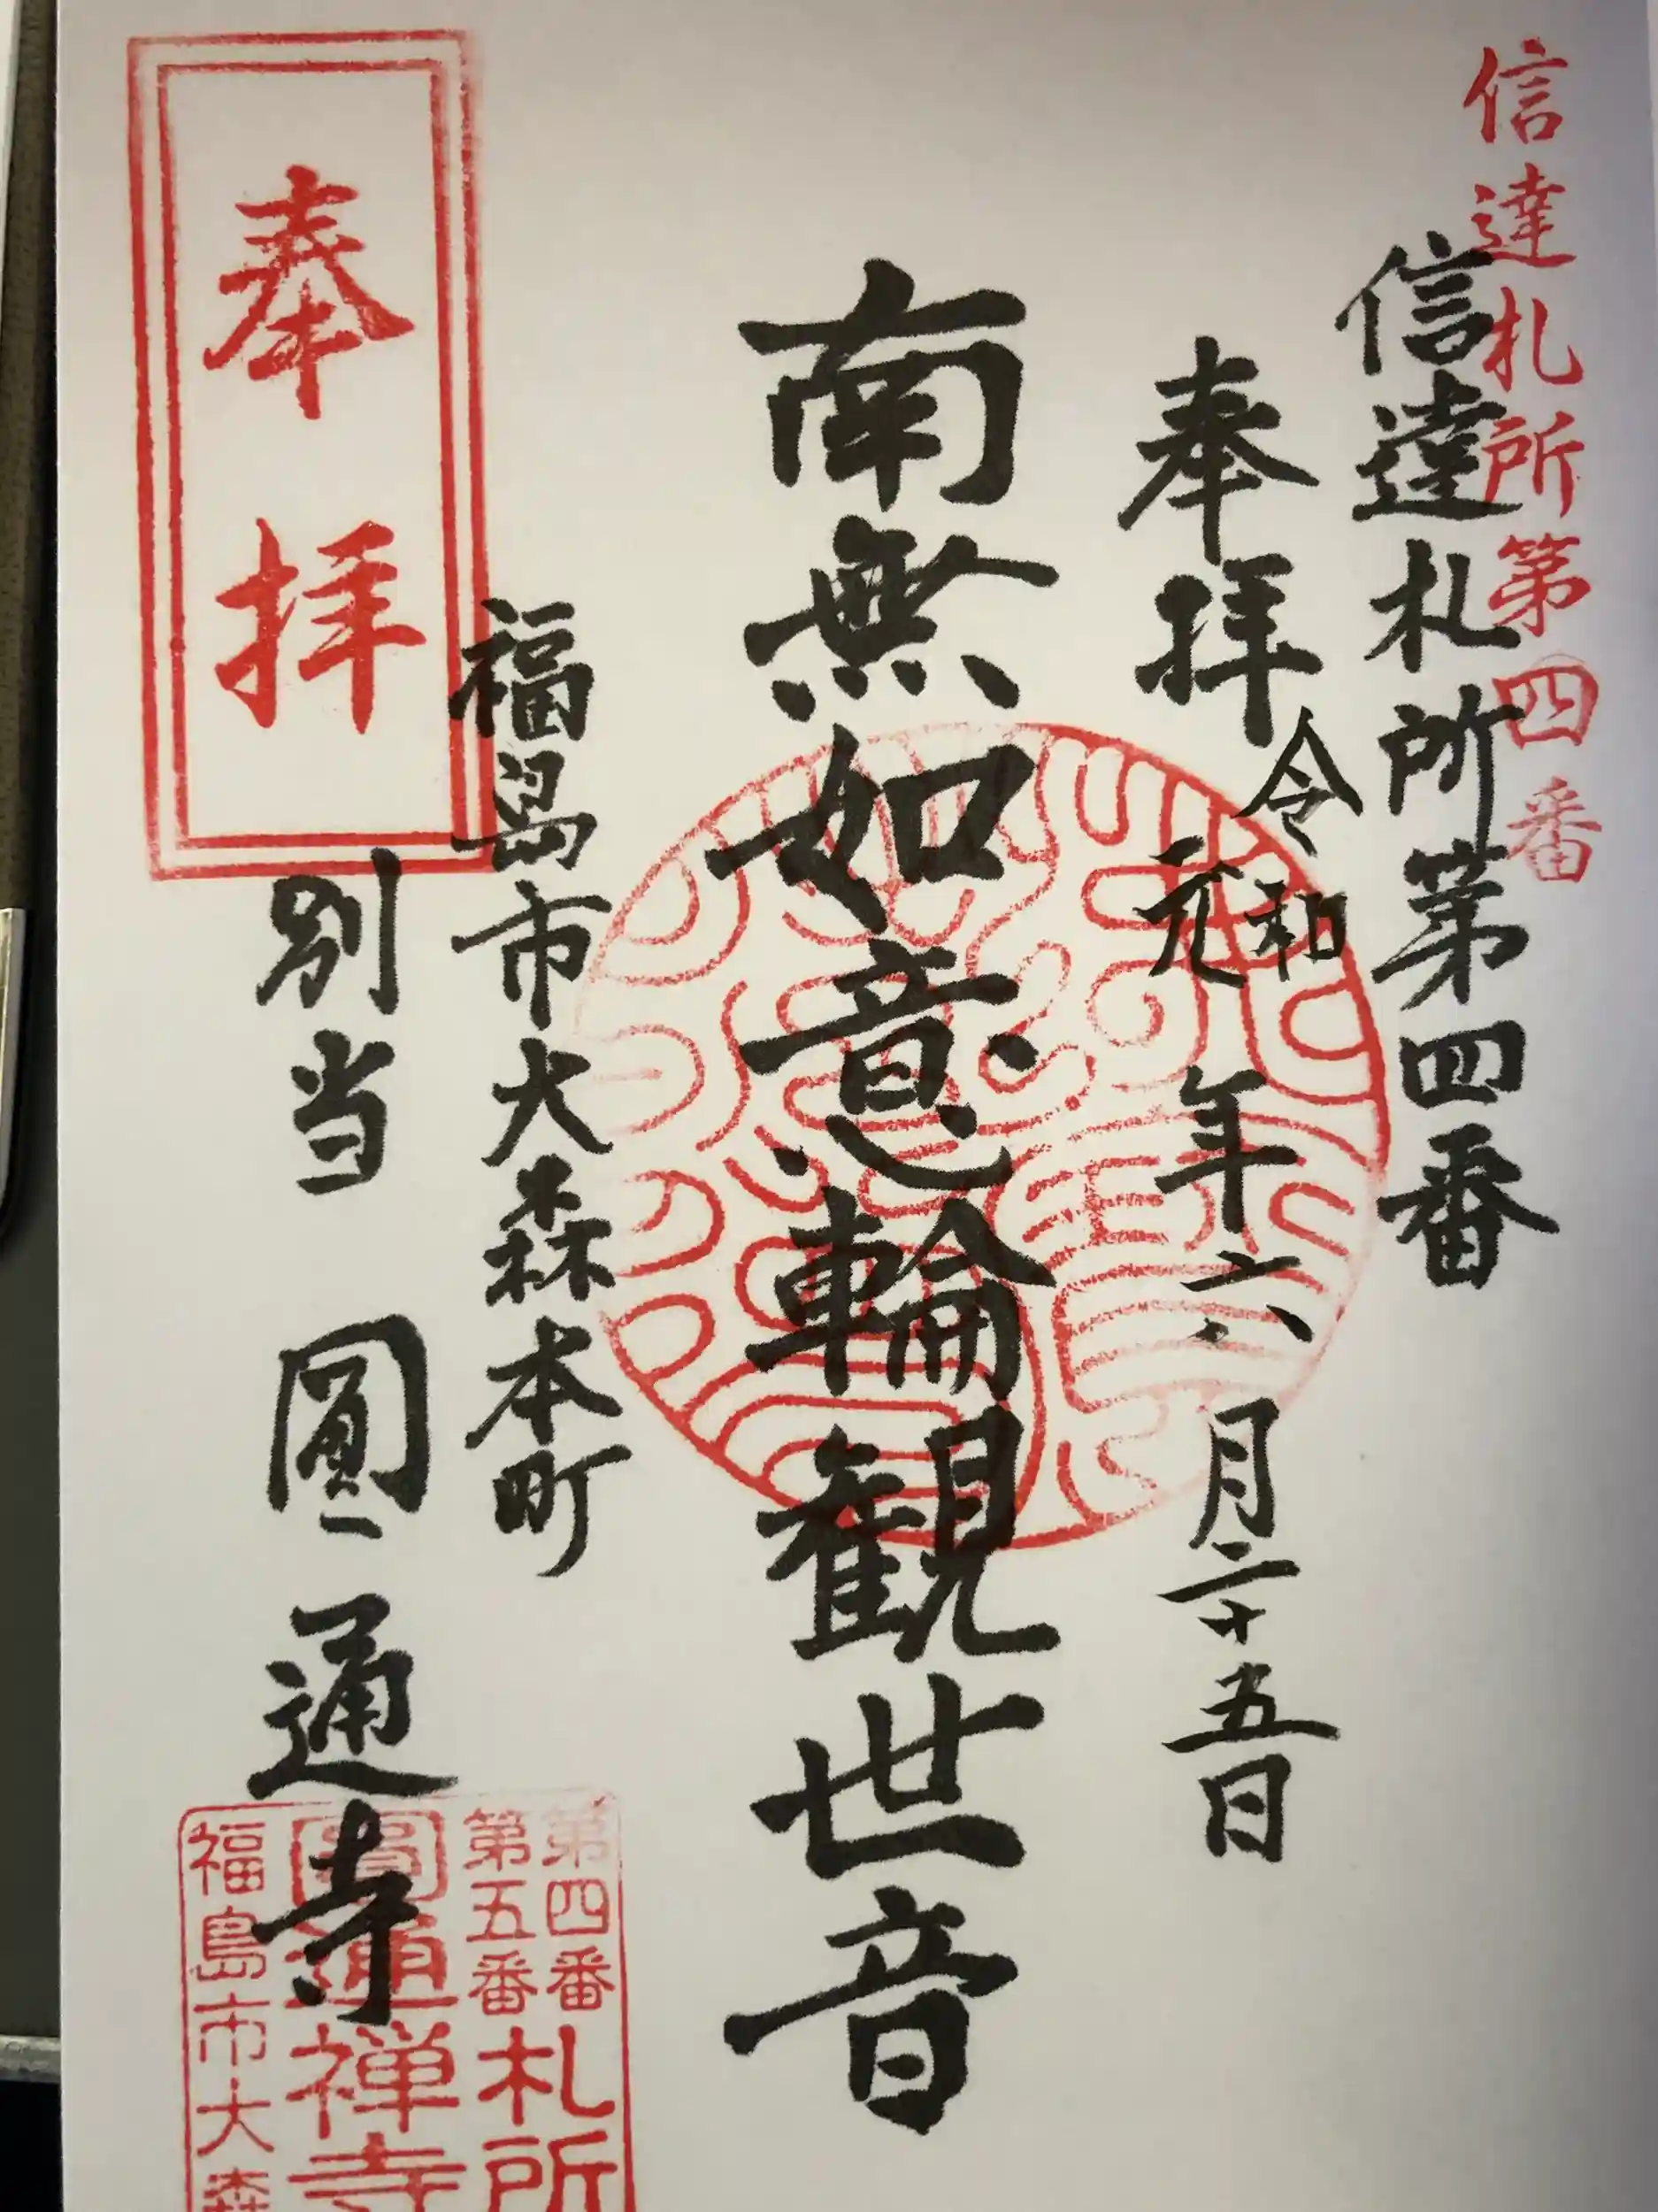 信達札所第四番
信達札所第四番
奉拝
令和
元年六月二十五日
南無如意輪観世音
福島市大森本町
奉拝
別当 圓通寺
第四番
第五番
札所
圓通禅寺
福島市大森